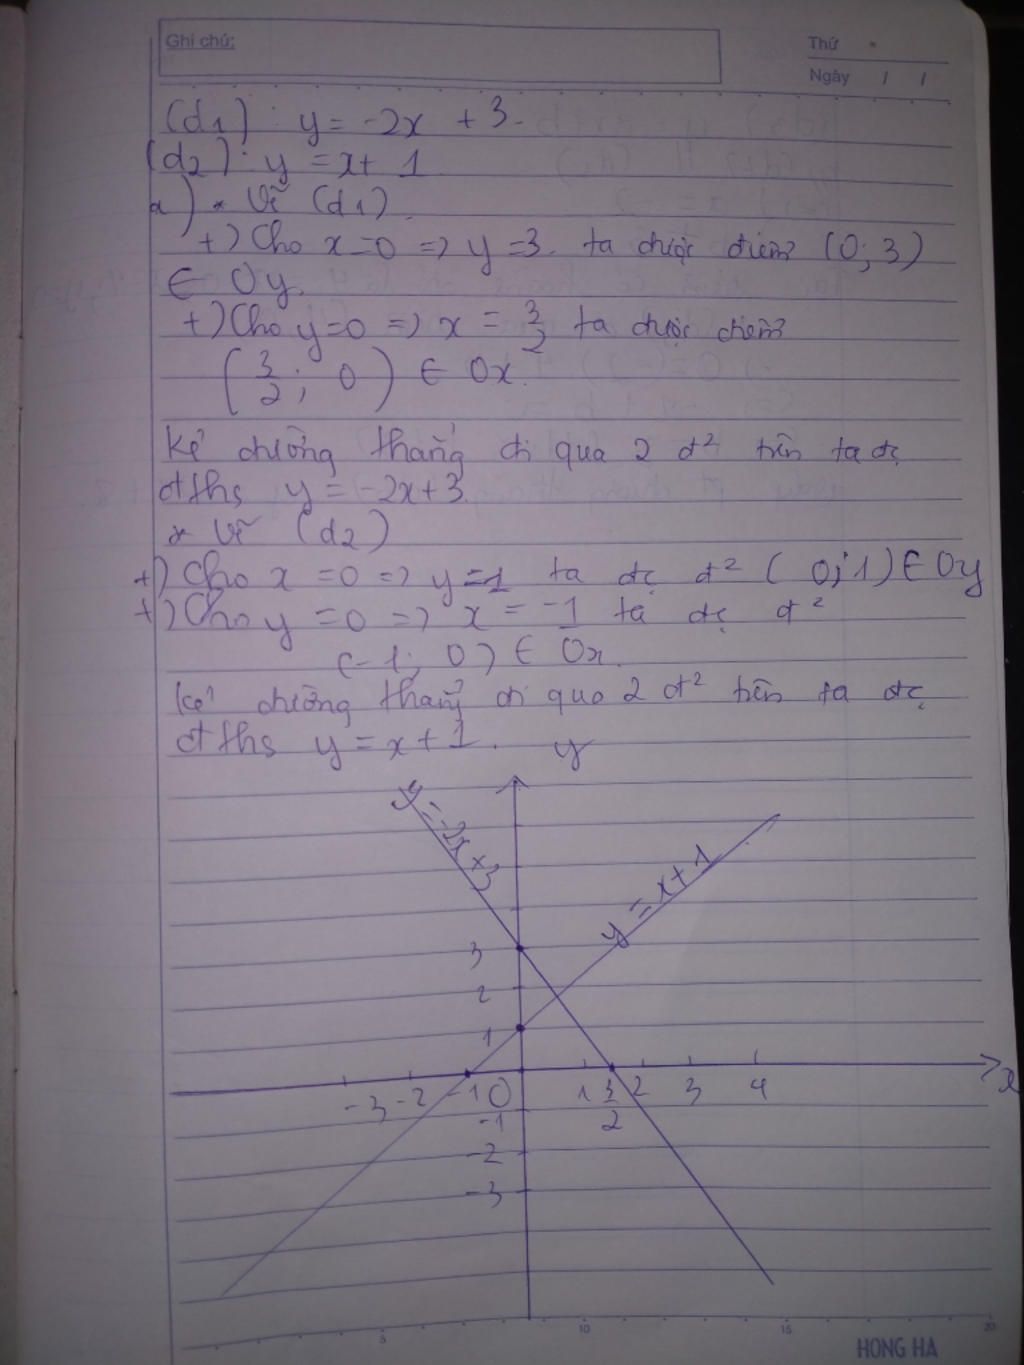 Ghi chú:
Thứ
Ngày / /
(d1) : y = -2x + 3.
(d2) : y = x + 1
a) * Vẽ (d1).
+) Cho x = 0 => y = 3. ta được điểm (0; 3)
∈ Oy.
+) Cho y = 0 => x = 3/2 ta được điểm
(3/2; 0) ∈ Ox.
Kẻ đường thẳng đi qua 2 đ² trên ta đc
đths y = -2x + 3.
* Vẽ (d2)
+) Cho x = 0 => y = 1 ta đc đ² (0; 1) ∈ Oy
+) Cho y = 0 => x = -1 ta đc đ²
(-1; 0) ∈ Ox.
Kẻ đường thẳng đi qua 2 đ² trên ta đc
đths y = x + 1.
y
y = -2x + 3
y = x + 1
3
2
1
x
-3 -2 -1 O 1 3/2 2 3 4
-1
-2
-3
5 10 15 20
HONG HA